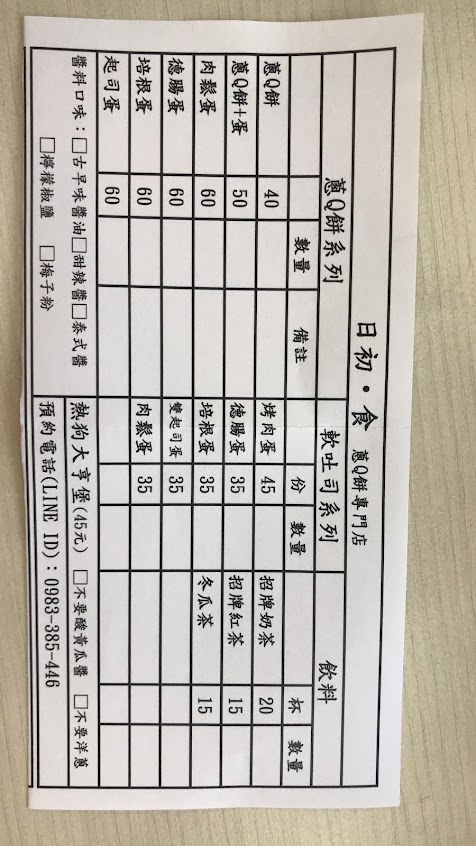 日初·食 蔥Q餅專門店
蔥Q餅系列 軟吐司系列 飲料
數量 備註 份 數量 杯 數量
蔥Q餅 40 烤肉蛋 45 招牌奶茶 20
蔥Q餅+蛋 50 德腸蛋 35 招牌紅茶 15
肉鬆蛋 60 培根蛋 35 冬瓜茶 15
德腸蛋 60 雙起司蛋 35
培根蛋 60 肉鬆蛋 35
起司蛋 60
醬料口味：□古早味醬油□甜辣醬□泰式醬
□檸檬椒鹽 □梅子粉
熱狗大亨堡(45元) □不要酸黃瓜醬 □不要洋蔥
預約電話(LINE ID)：0983-385-446